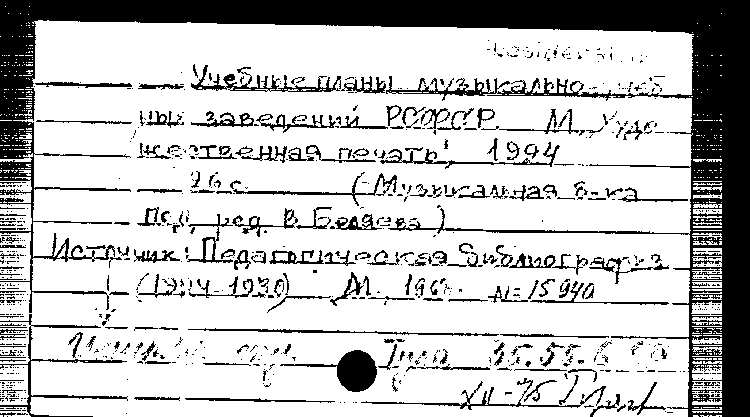 Учебные планы музыкально-учеб
ных заведений РСФСР. М., Худо
жественная печать, 1924
26 с. (Музыкальная б-ка
под ред. В. Беляева)
Источник: Педагогическая библиография
(1924-1930) М., 196 N=15940
Тула 35.55.6
XII-75